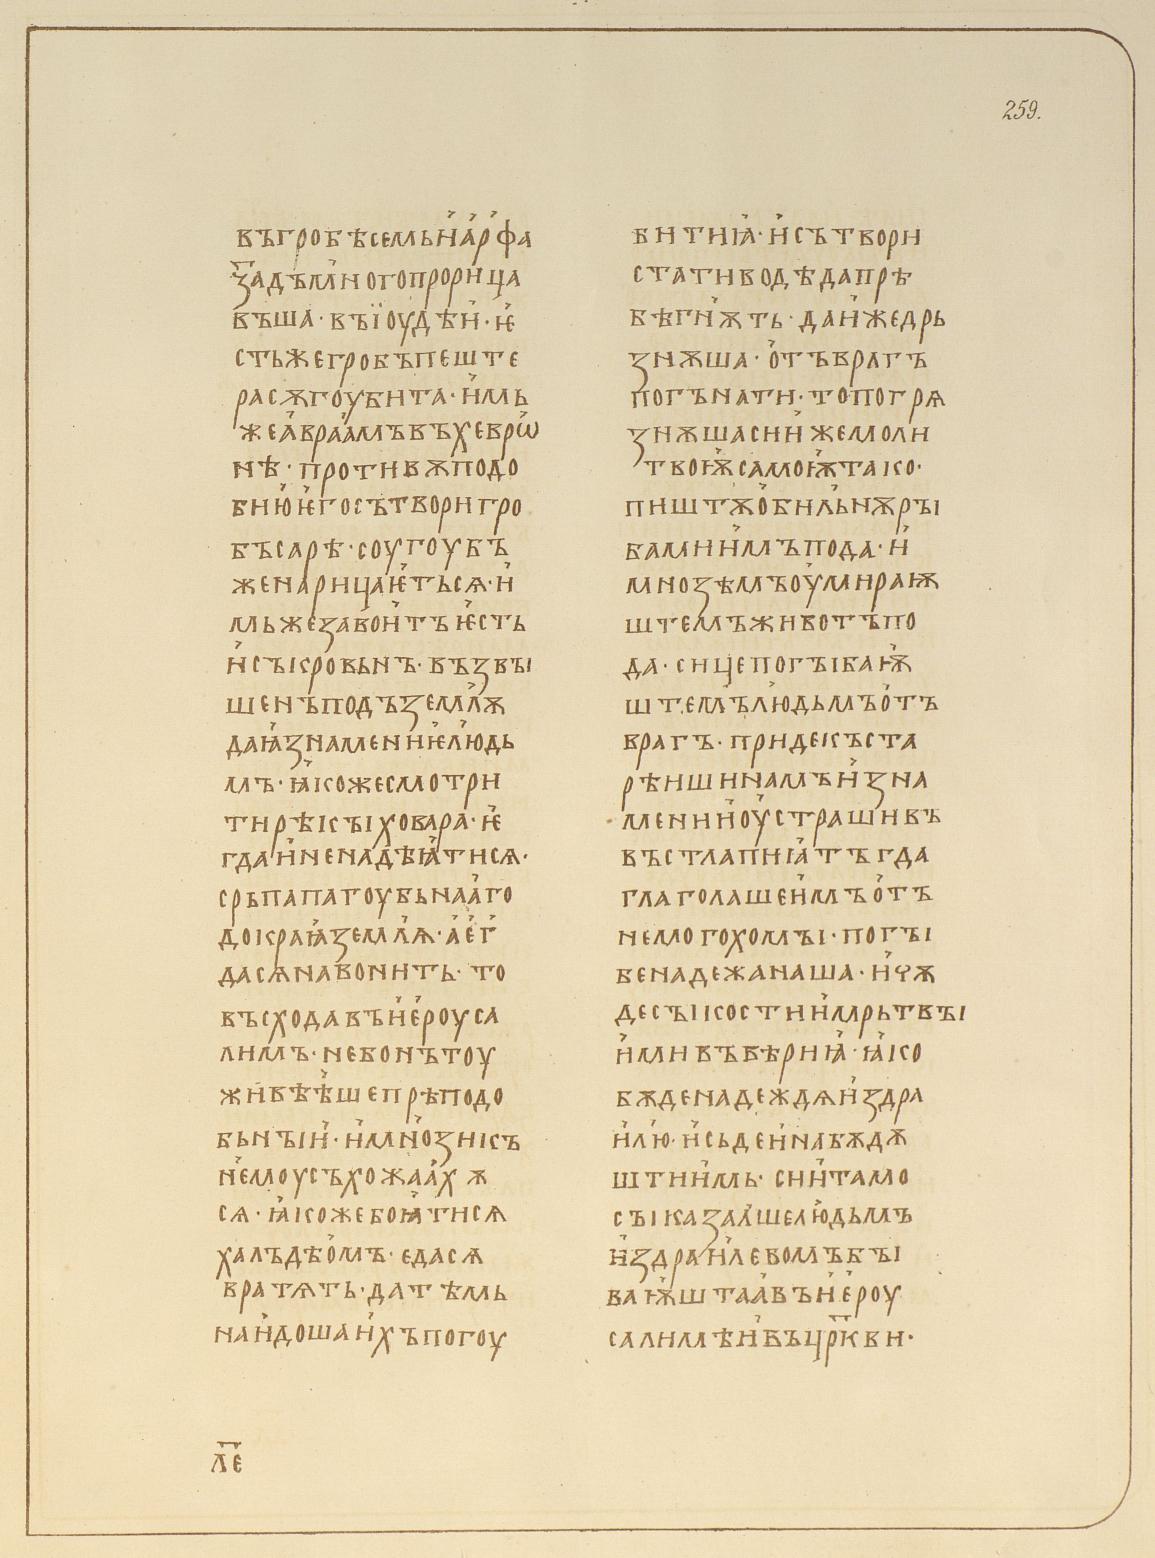 259.
въгробѣсемьн҆а҆р҆фа
з҃адъмногопрорица
въша· въїоудѣн҆· ѥ҆
стьжегробъпеште
расѫгоубита· н҆мь
жеа҆враа҆мъвъхеврѡ҆
нѣ· противѫподо
бию҆ѥ҆госътворигро
бъсарѣ· соугоубъ
женарицаѥ҆тьсѧ· н҆
мьжезавон҆тъѥ҆сть
н҆съкровьнъ· възвы
шенъподъземл҆ѫ
даꙗ҆знамениѥ҆лю҆дь
мъ· ꙗ҆кожесмотри
тирѣкъıховара· ѥ҆
гдан҆ненадѣꙗ҆тисѧ·
срьпапагоубьнаа҆го
докраꙗ҆земл҆ѧ· а҆е҆г҆
дасѧнавонить· то
въсходавън҆е҆роуса
лимъ· небонътоу
живѣѣ҆шепрѣподо
бьнъıн҆· н҆мно҆зикъ
не҆моусъхожаа҆хѫ
сѧ· ꙗ҆кожебоꙗ҆тисѧ
халъдѣо҆мъ· едасѧ
вратѧть· датѣмь
нан҆дошан҆хъпогоу
л҃е
битиꙗ҆· н҆сътвори
стативодѣдапрѣ
бѣгн҆ѫть· дан҆жедрь
знѫша· о҆тъврагъ
погънати· топогрѧ
знѫшасин҆жемоли
твоѭ҆самоѭ҆тако·
пиштѫо҆бил҆ьнѫръı
бамин҆мъпода· н҆
мноѕѣмъоу҆мираѭ҆
штемъживотъпо
да· сицепогъıбаѭ҆
штемълю҆дьмъо҆тъ
врагъ· придекъста
рѣишинамън҆зна
менин҆оу҆страшивъ
въстлапниꙗ҆тъгда
глаголашен҆мъо҆тъ
немогохомъı· погъı
бенадежанаша· н҆чѫ
десъıкостин҆мрьтвъı
н҆мивъвѣриꙗ҆· ꙗ҆ко
бѫденадеждѧн҆здра
н҆лю҆· н҆сьден҆набѫдѫ
штин҆мь· син҆тамо
съıказал҆шелю҆дьмъ
н҆здран҆левомъбъı
ваѭ҆штаа҆вън҆е҆роу
салимѣн҆въцр҃кви·